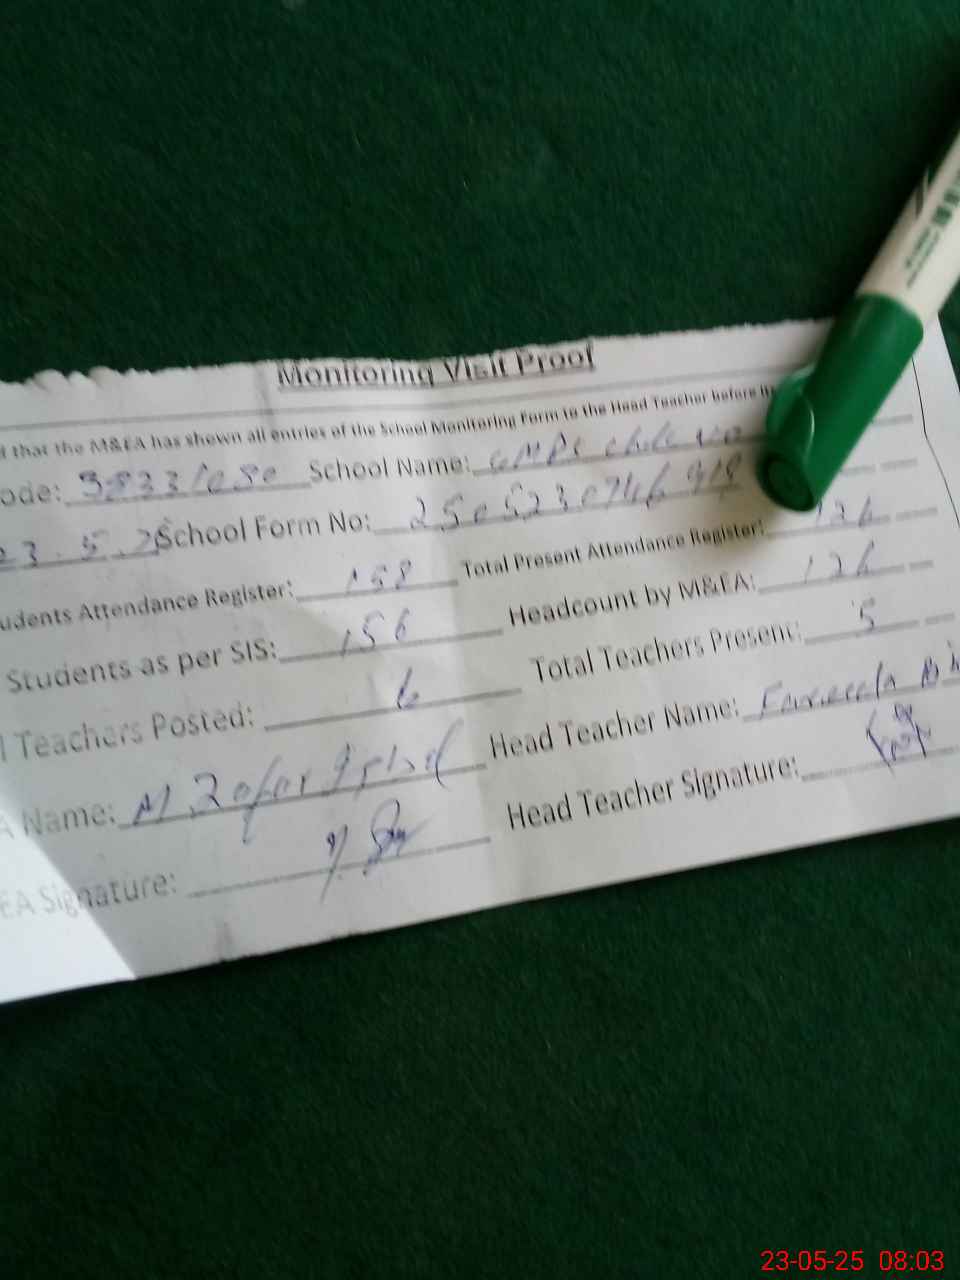 Monitoring Visit Proof
d that the M&EA has shown all entries of the School Monitoring Form to the Head Teacher before
ode: 38231080 School Name: GMPS
23.5.25 School Form No: 250523074648
udents Attendance Register: 158 Total Present Attendance Register: 126
Students as per SIS: 156 Headcount by M&EA: 126
l Teachers Posted: 6 Total Teachers Present: 5
A Name: M Zafar Iqbal Head Teacher Name:
EA Signature: Head Teacher Signature:
23-05-25 08:03